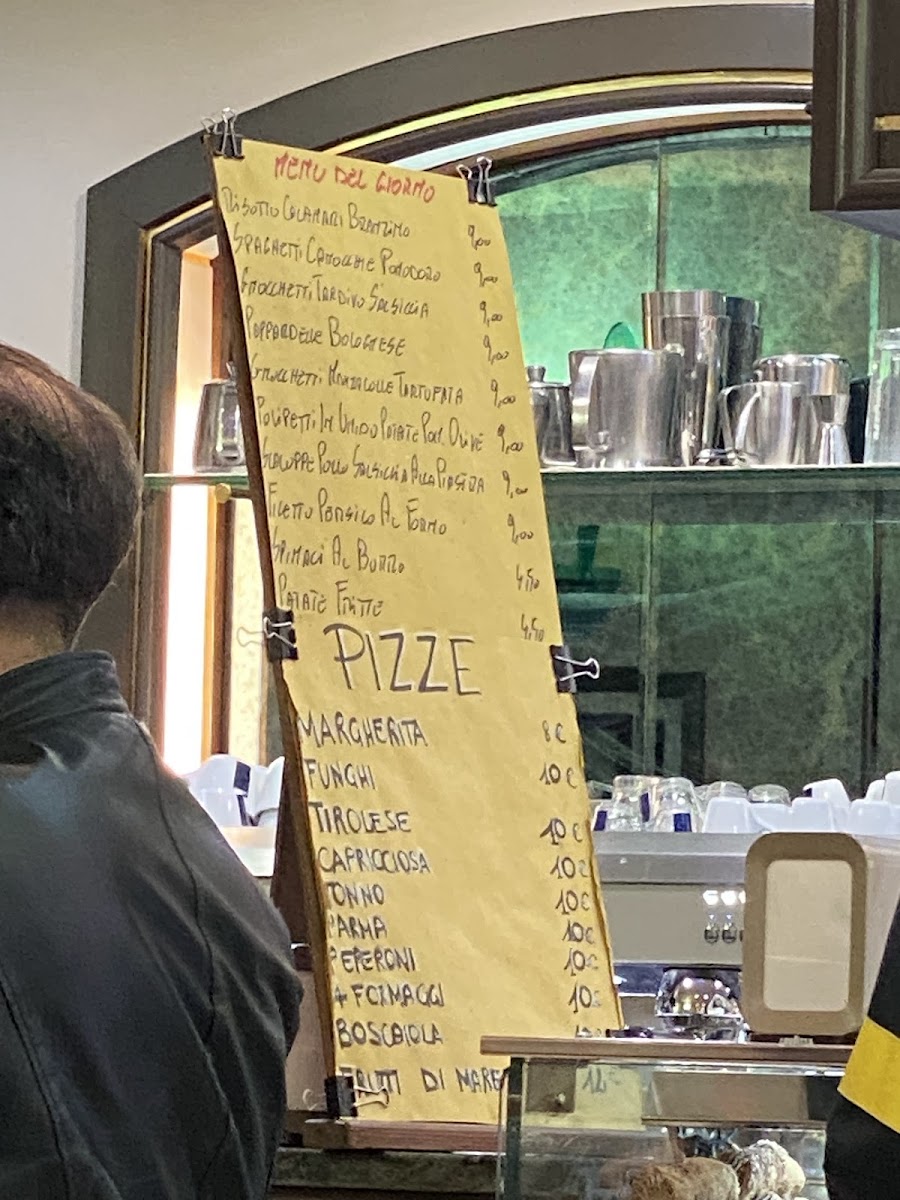 MENU DEL GIORNO
RISOTTO CALAMARI BRANZINO 9,00
SPAGHETTI CANOCCHIE POMODORO 9,00
GNOCCHETTI TARDIVO SALSICCIA 9,00
PAPPARDELLE BOLOGNESE 9,00
GNOCCHETTI MAZZACOLLE TARTUFATA 9,00
POLIPETTI IN UMIDO PATATE POM. OLIVE 9,00
POLLO SALSICCIA ALLA PIASTRA 9,00
FILETTO PERSICO AL FORNO 9,00
SPINACI AL BURRO 4,50
PATATE FRITTE 4,50
PIZZE
MARGHERITA 8€
FUNGHI 10€
TIROLESE 10€
CAPRICCIOSA 10€
TONNO 10€
PARMA 10€
PEPERONI 10€
4 FORMAGGI 10€
BOSCAIOLA
FRUTTI DI MARE